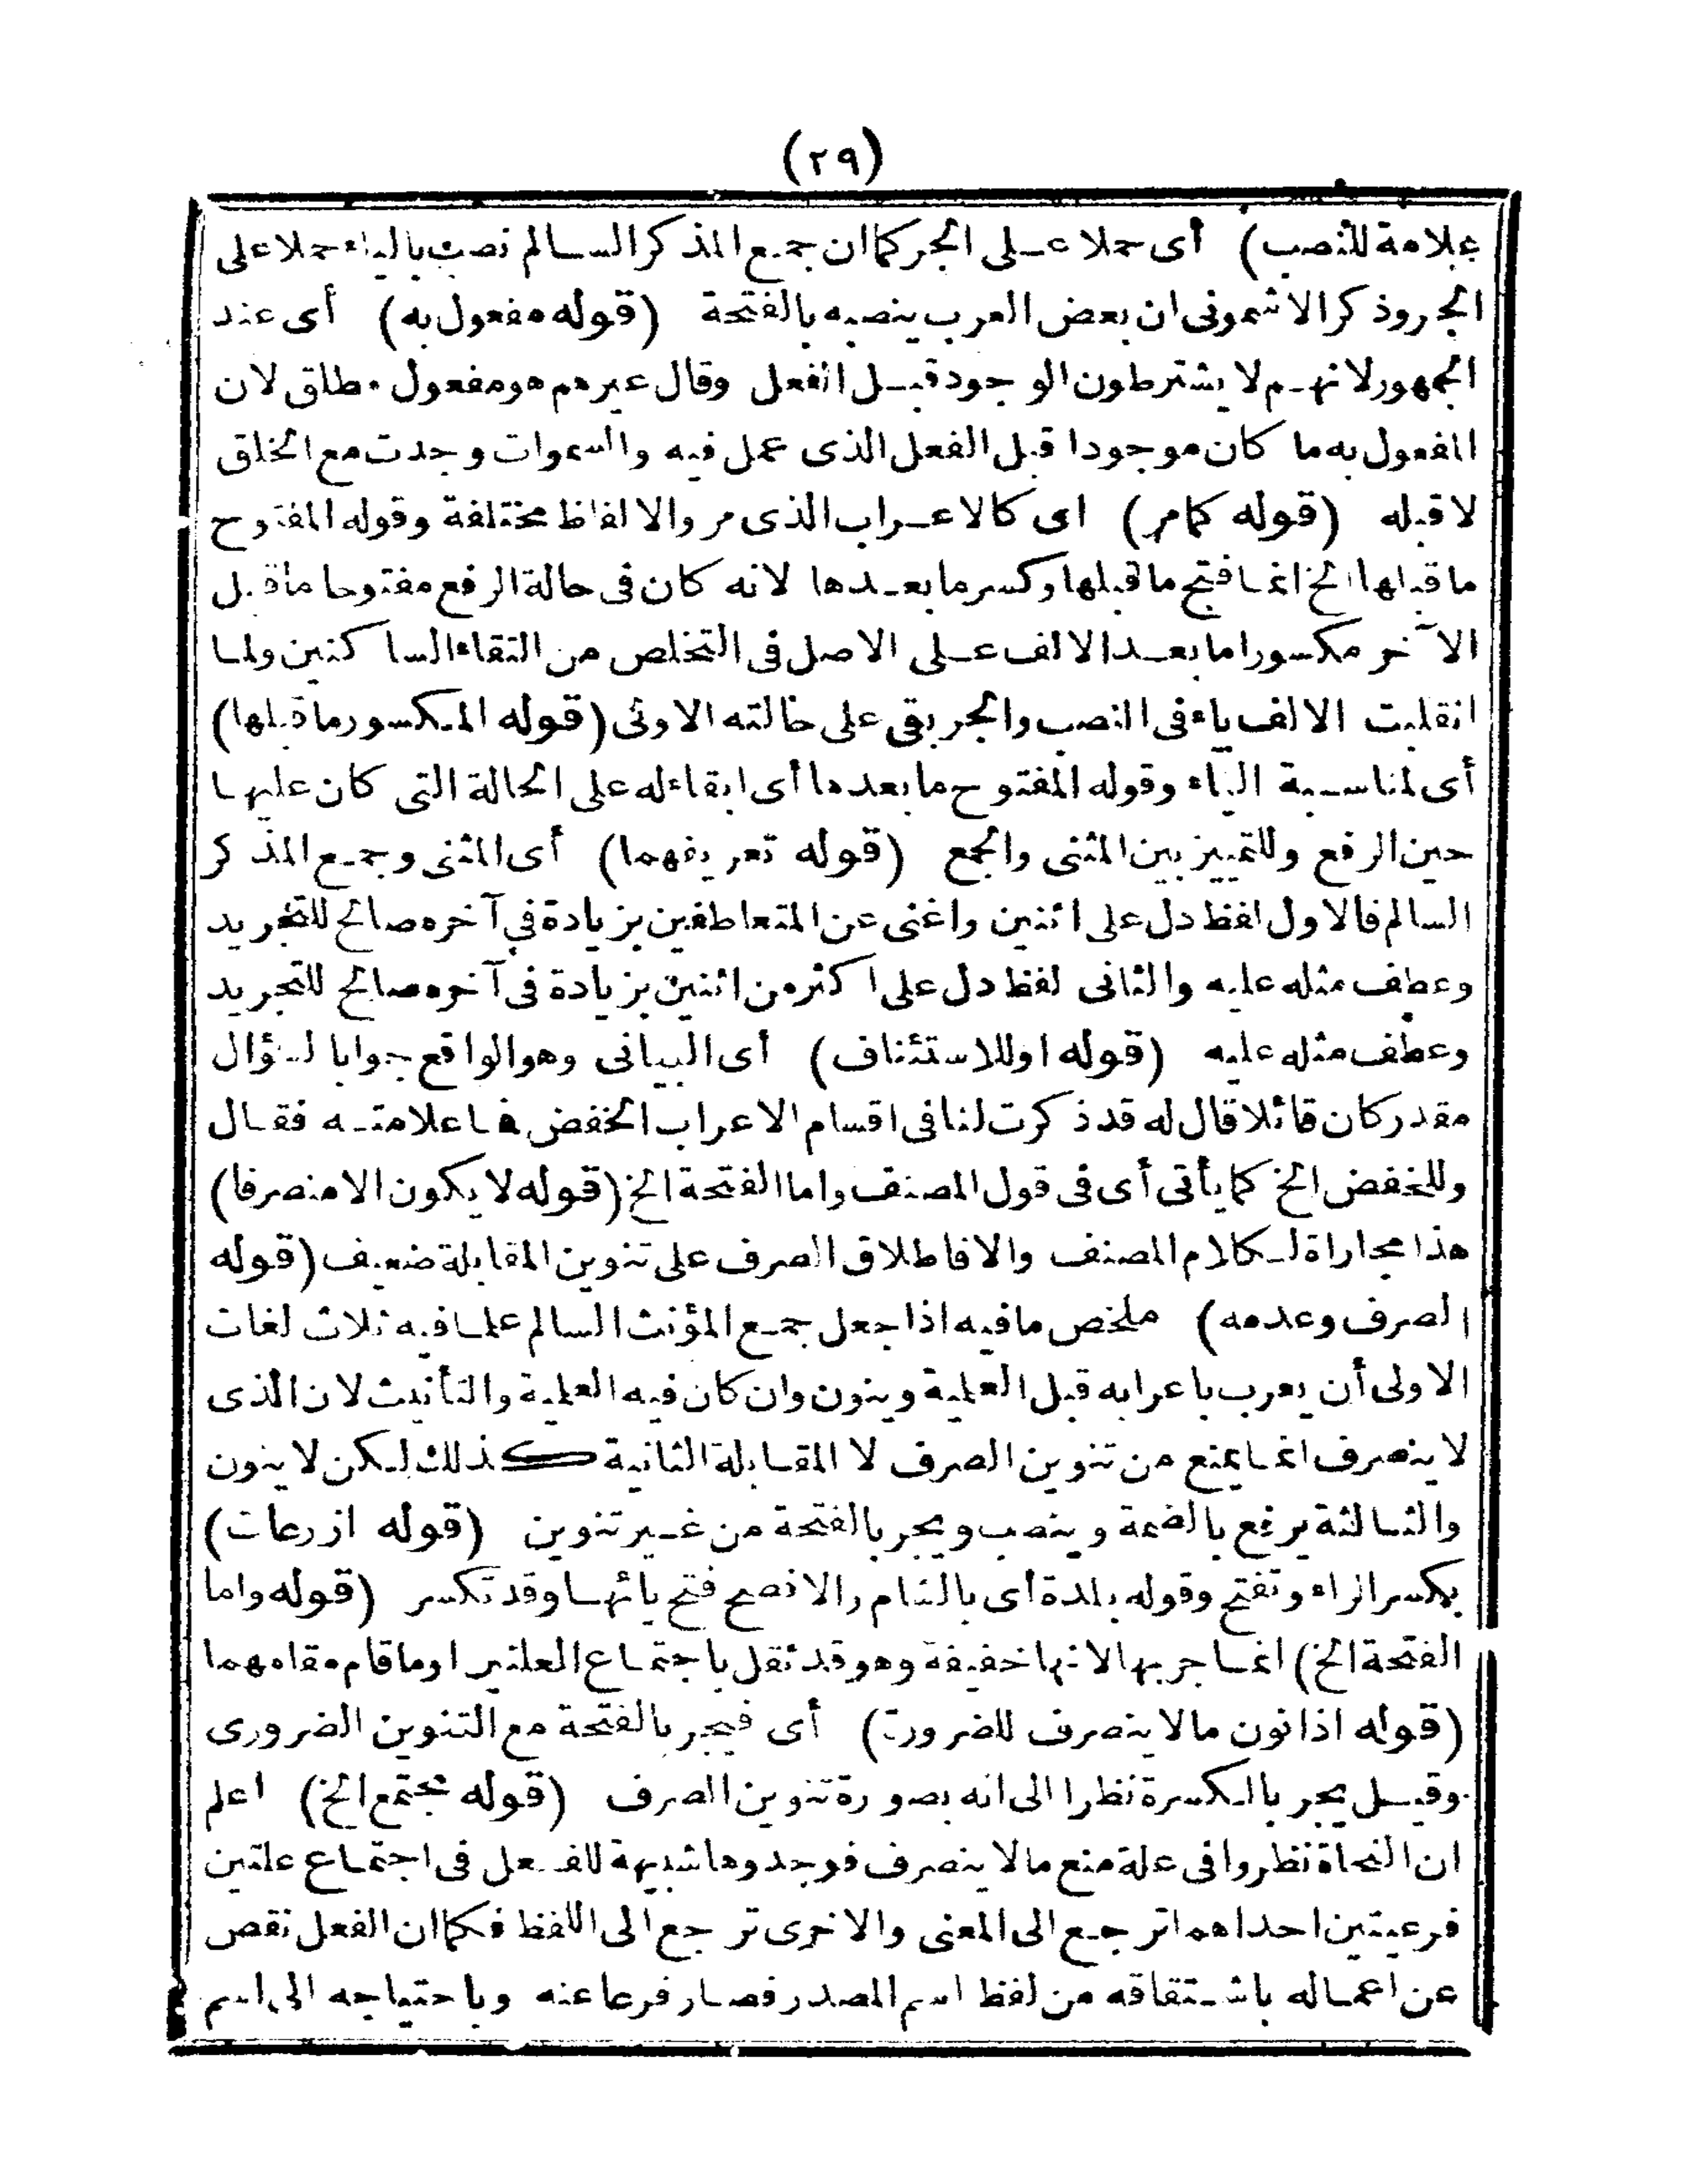 (٢٩)
علامة للنصب) أى حملا عــلى الجر كما ان جمـع المذكر السـالم نصب بالياء حملا على
الجر وذكر الاشمونى ان بعض العرب ينصبه بالفتحة (قوله مفعول به) أى عند
الجمهور لانهـم لا يشترطون الوجود قبــل الفعل وقال غيرهم هو مفعول مطلق لان
المفعول به ما كان موجودا قبل الفعل الذى عمل فيه والسموات وجدت مع الخلق
لا قبله (قوله كمامر) اى كالاعــراب الذى مر والالفاظ مختلفة وقوله المفتوح
ما قبلها الخ انمـا فتح ما قبلها وكسر ما بعـدها لانه كان فى حالة الرفع مفتوحا ما قبـل
الآخر مكسورا ما بعــد الالف عــلى الاصل فى التخلص من التقاء الساكنين ولمـا
انقلبت الالف ياء فى النصب والجر بقى على حالته الاولى (قوله المـكسور ما قبلها)
أى لمناسـبة الياء وقوله المفتوح ما بعدها أى ابقاء له على الحالة التى كان عليهـا
حين الرفع وللتمييز بين المثنى والجمع (قوله تعريفهما) أى المثنى وجمـع المذكر
السالم فالاول لفظ دل على اثنين واغنى عن المتعاطفين بزيادة فى آخره صالح للتجريد
وعطف مثله عليه والثانى لفظ دل على اكثر من اثنين بزيادة فى آخره صالح للتجريد
وعطف مثله عليه (قوله اوللاستئناف) أى البيانى وهو الواقع جوابا لسؤال
مقدر كان قائلا قال له قد ذكرت لنا فى اقسام الاعراب الخفض فـا علامتـه فقـال
وللخفض الخ كما يأتى أى فى قول المصنف واما الفتحة الخ (قوله لا يكون الا منصرفا)
هذا مجاراة لـكلام المصنف والا فاطلاق الصرف على تنوين المقابلة ضعيف (قوله
الصرف وعدمه) ملخص ما فيه اذا جعل جمـع المؤنث السالم علمـا فيه ثلاث لغات
الاولى أن يعرب باعرابه قبل العلمية وينون وان كان فيه العلمية والتأنيث لان الذى
لا ينصرف انمـا يمنع من تنوين الصرف لا المقـابلة الثانية كذلك لـكن لا ينون
والثـالثة يرفع بالضمة وينصب ويجر بالفتحة من غـير تنوين (قوله ازرعات)
بكسر الراء وتفتح وقوله بلدة أى بالشام والافصح فتح يائهـا وقد تكسر (قوله واما
الفتحة الخ) انمـا جر بها لانها خفيفة وهو قد ثقل باجتمـاع العلتير او ما قام مقامهما
(قوله اذا نون ما لا ينصرف للضرورة) أى فيجر بالفتحة مع التنوين الضرورى
وقيــل يجر بالـكسرة نظرا الى انه بصورة تنوين الصرف (قوله يجتمع الخ) اعلم
ان النحاة نظروا فى علة منع ما لا ينصرف فوجدوها شبيهة للفـعل فى اجتمـاع علتين
فرعيتين احداهمـا ترجـع الى المعنى والاخرى ترجع الى اللفظ فكما ان الفعل نقص
عن اعمـاله باشـتقاقه من لفظ اسم المصدر فصـار فرعا عنه وباحتياجه الى اسم